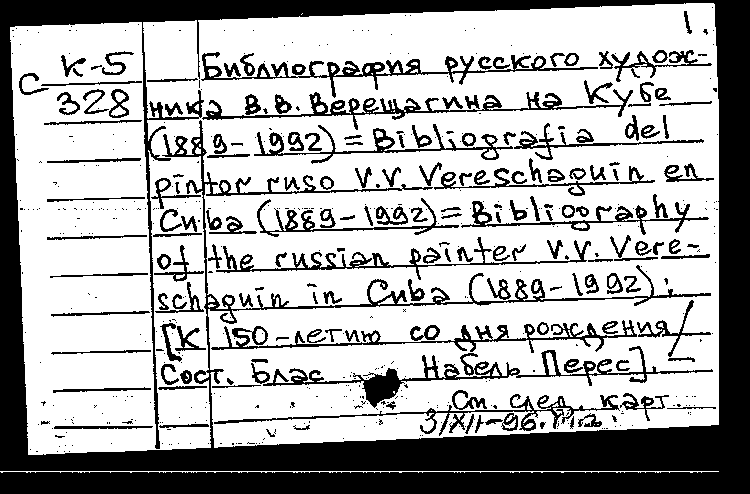 1.
С К-5
328
Библиография русского худож-
ника В.В. Верещагина на Кубе
(1889-1992) = Bibliografia del
pintor ruso V.V. Vereschaguin en
Cuba (1889-1992) = Bibliography
of the russian painter V.V. Vere-
schaguin in Cuba (1889-1992):
[К 150-летию со дня рождения /
Сост. Блас Набель Перес]. —
См. след. карт.
3/XII-96.